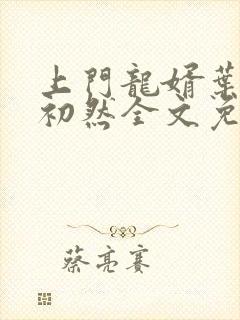 上門龍婿葉
初然全文免
蔡亮賽